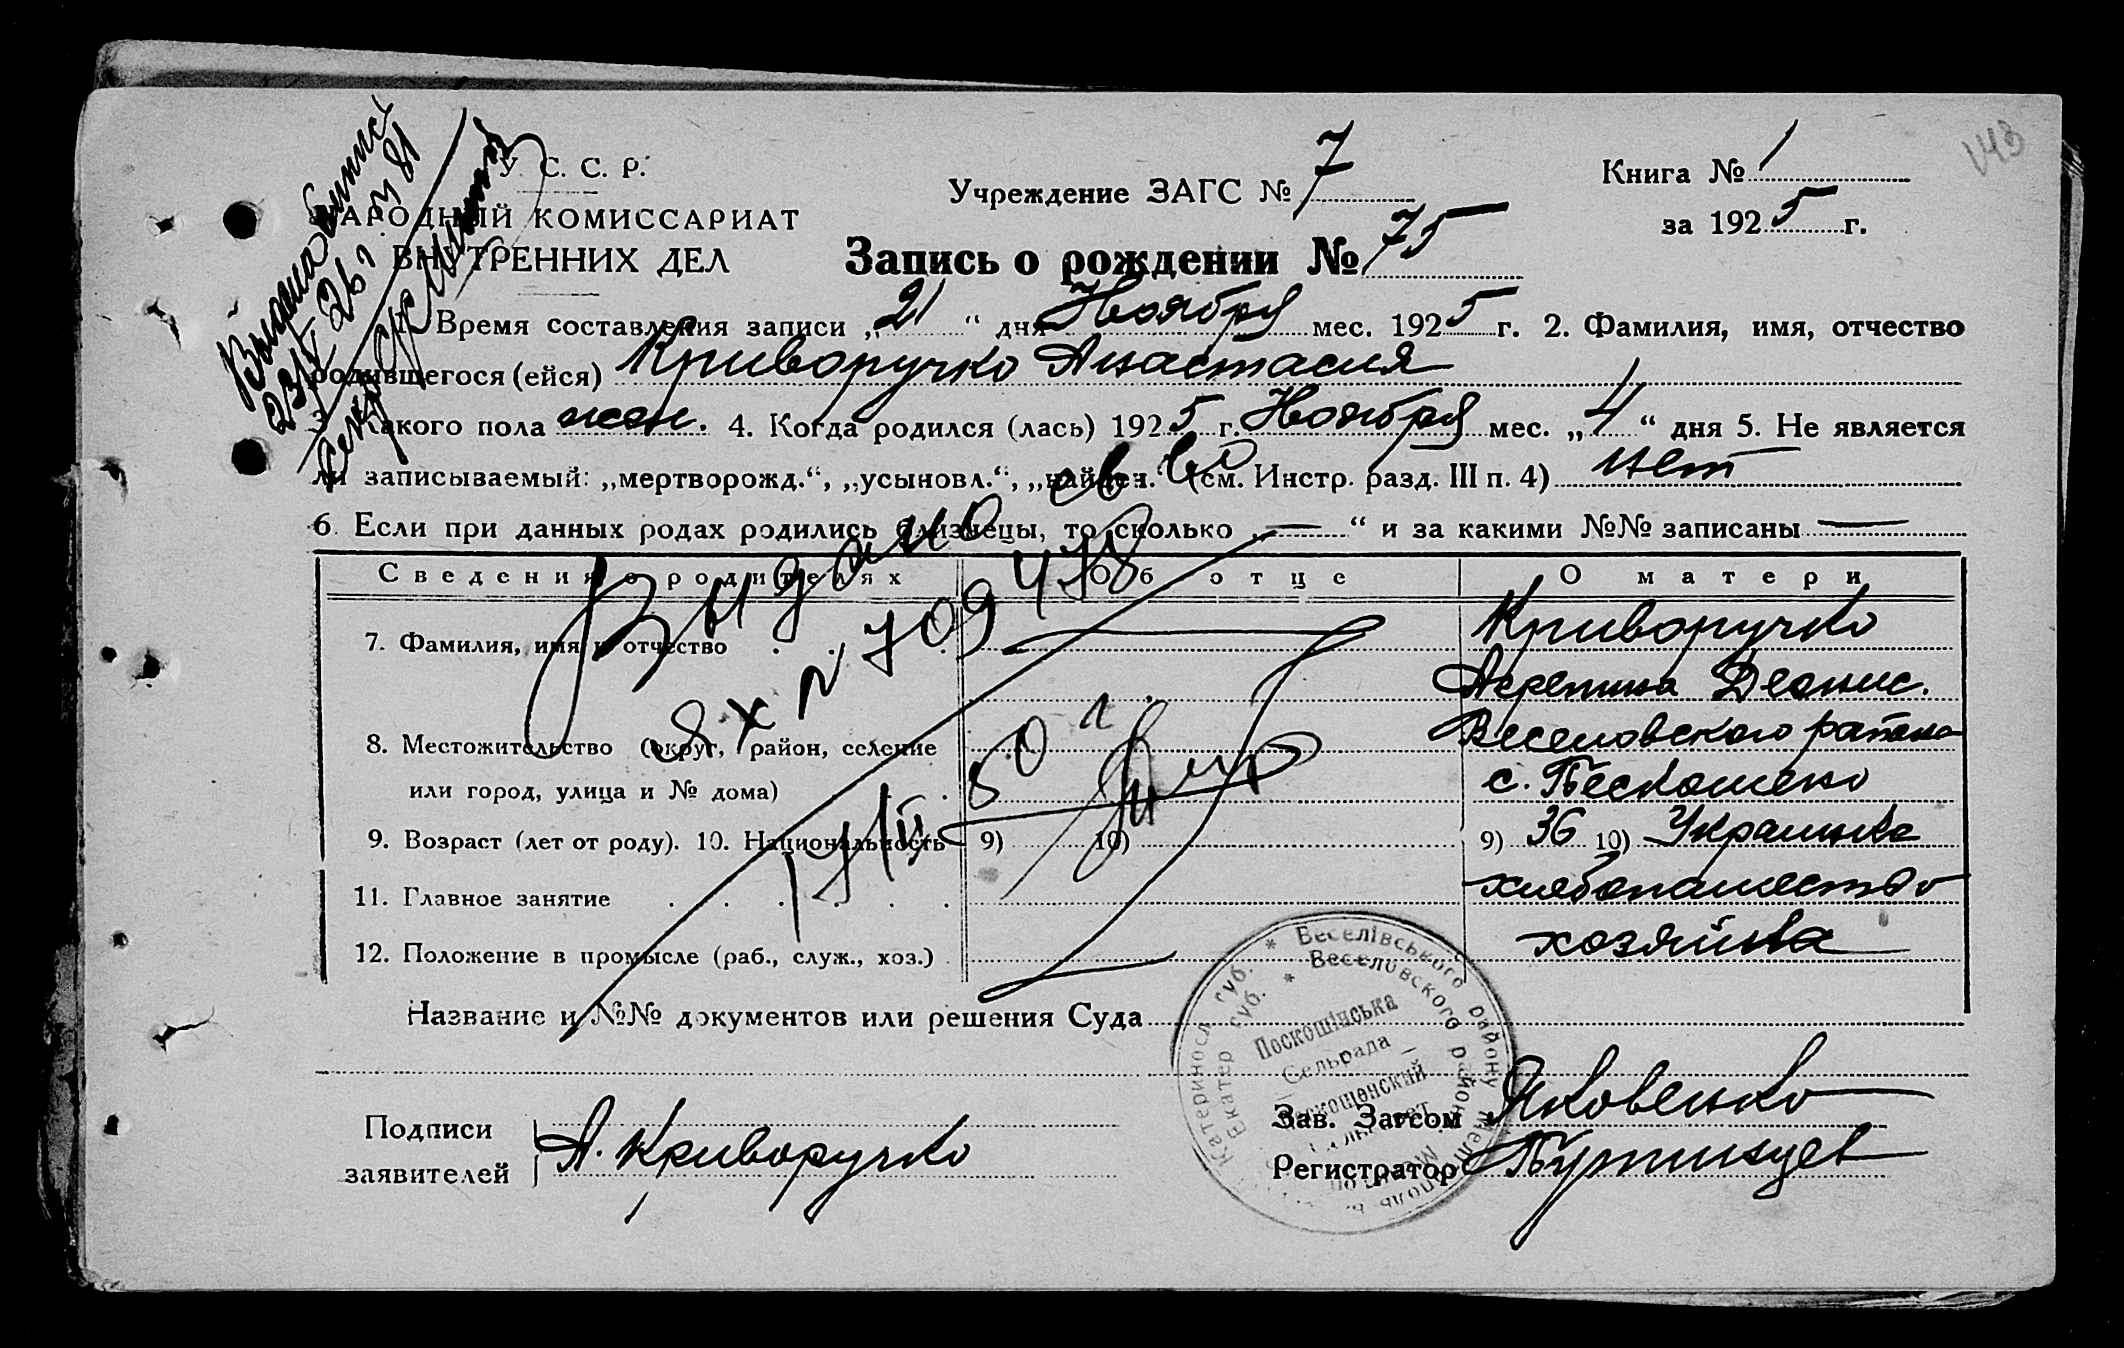 У. С. С. Р.
НАРОДНЫЙ КОМИССАРИАТ
ВНУТРЕННИХ ДЕЛ
Учреждение ЗАГС № 7
Книга № 1
за 1925 г.
Запись о рождении № 75
1. Время составления записи „21“ дня Ноября мес. 1925 г. 2. Фамилия, имя, отчество
родившегося (ейся) Криворучко Анастасия
3. Какого пола жен. 4. Когда родился (лась) 1925 г. Ноября мес. „4“ дня 5. Не является
ли записываемый: „мертворожд.“, „усыновл.“, „найден.“ (см. Инстр. разд. III п. 4) нет
6. Если при данных родах родились близнецы, то сколько „—“ и за какими №№ записаны —
Сведения о родителях Об отце О матери
7. Фамилия, имя и отчество Криворучко
Деонис.
8. Местожительство (округ, район, селение Веселовского района
или город, улица и № дома) с.
9. Возраст (лет от роду). 10. Национальность 9) 10) 9) 36 10) Украинка
11. Главное занятие хлебопашество
12. Положение в промысле (раб., служ., хоз.) хозяйка
Название и №№ документов или решения Суда
Подписи
заявителей А. Криворучко
Зав. Загсом Яковенко
Регистратор
Выдано св во
ЯХ № 709478
50 г.
Выдана
Веселівського району
Веселовского района
Катериносл губ.
Екатер губ.
Сельрада
143